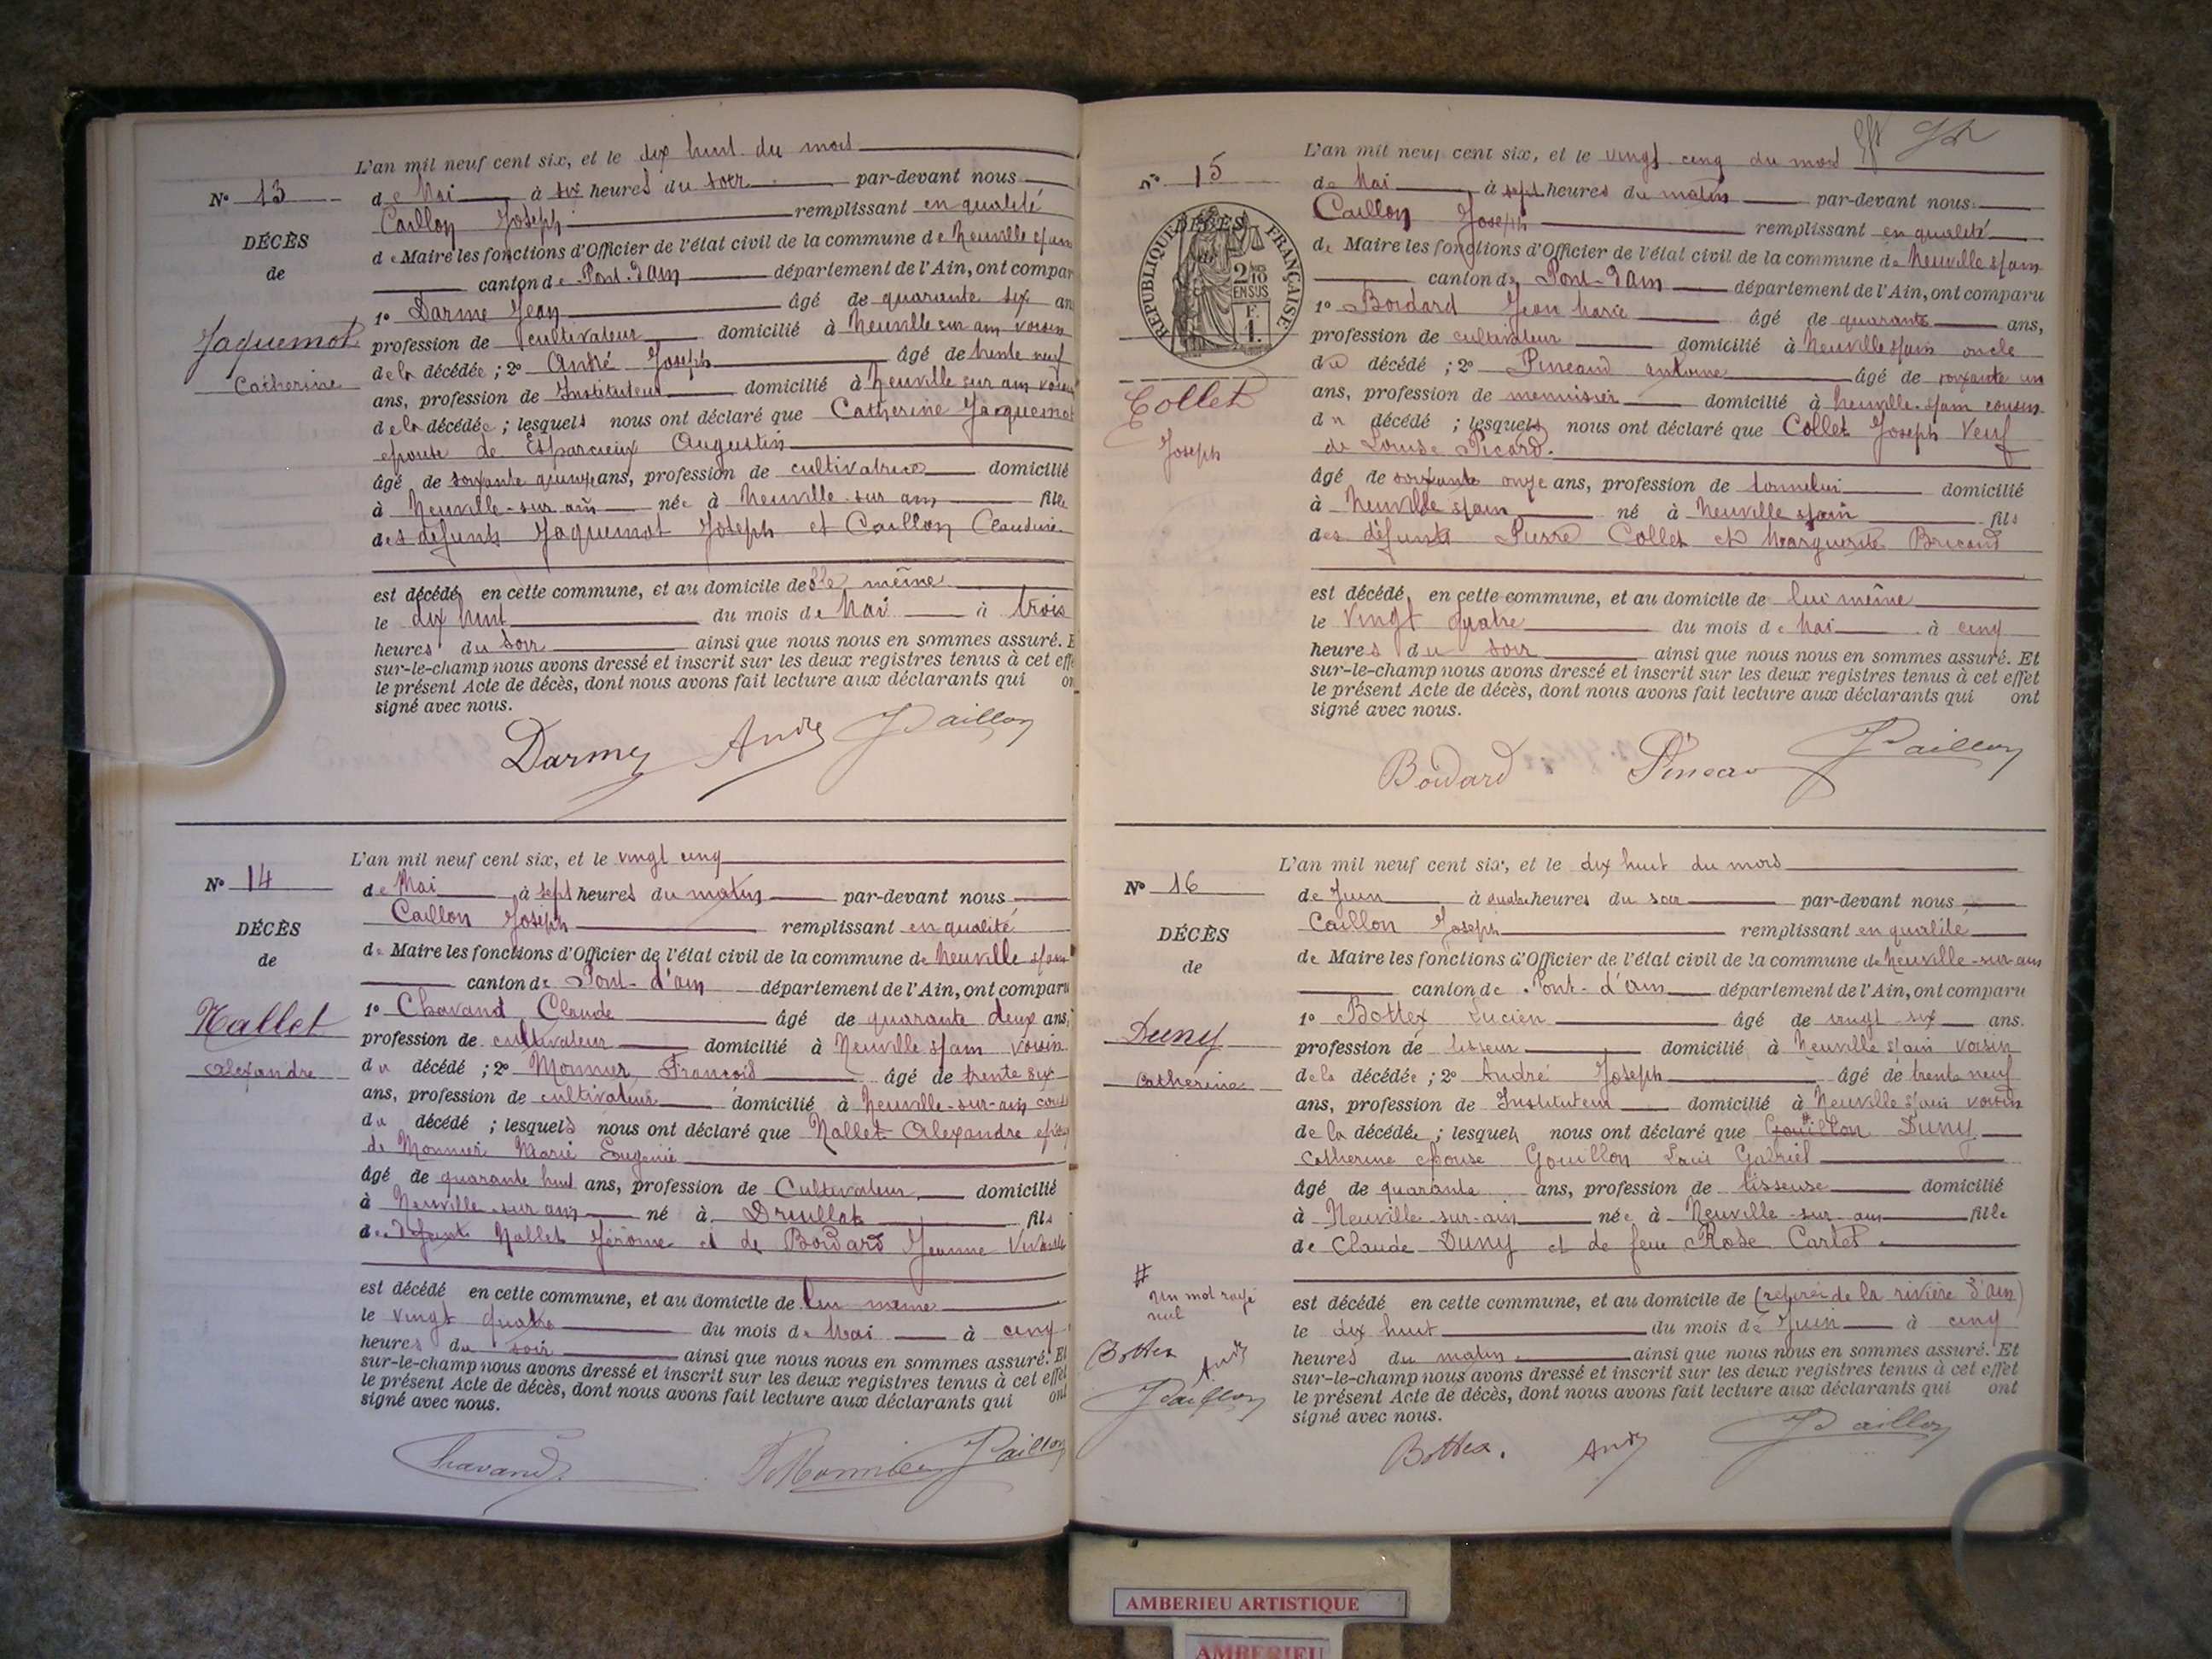 L'an mil neuf cent six, et le dix huit du mois
N° 13
de Mai à six heures du soir par-devant nous
Caillon Joseph remplissant en qualité
DÉCÈS
de Maire les fonctions d'Officier de l'état civil de la commune de Neuville s/ain
de
canton de Pont-d'Ain département de l'Ain, ont compar
1° Darme Jean âgé de quarante six an
Jaquemot
profession de cultivateur domicilié à Neuville sur ain voisin
Catherine
de la décédée ; 2° André Joseph âgé de trente neuf
ans, profession de Instituteur domicilié à Neuville sur ain voisin
de la décédée ; lesquels nous ont déclaré que Catherine Jaquemot
épouse de Esparcieux Augustin
âgé de soixante quinze ans, profession de cultivatrice domicilié
à Neuville-sur ain née à Neuville-sur ain fille
des défunts Jaquemot Joseph et Caillon Claudine
est décédé, en cette commune, et au domicile de elle même
le dix huit du mois de Mai à trois
heures du soir ainsi que nous nous en sommes assuré. E
sur-le-champ nous avons dressé et inscrit sur les deux registres tenus à cet effe
le présent Acte de décès, dont nous avons fait lecture aux déclarants qui on
signé avec nous.
Darme André JCaillon
L'an mil neuf cent six, et le vingt cinq
N° 14
de Mai à sept heures du matin par-devant nous
Caillon Joseph remplissant en qualité
DÉCÈS
de Maire les fonctions d'Officier de l'état civil de la commune de Neuville s/ain
de
canton de Pont-d'ain département de l'Ain, ont comparu
1° Chavand Claude âgé de quarante deux ans,
Nallet
profession de cultivateur domicilié à Neuville s/ain voisin
Alexandre
du décédé ; 2° Monnier François âgé de trente six
ans, profession de cultivateur domicilié à Neuville-sur-ain
du décédé ; lesquels nous ont déclaré que Nallet Alexandre
de Monnier Marie Eugénie
âgé de quarante huit ans, profession de Cultivateur domicilié
à Neuville-sur ain né à Druillat fils
de défunt Nallet Jérôme et de Boidard Jeanne
est décédé en cette commune, et au domicile de lui même
le vingt quatre du mois de Mai à cinq
heures du soir ainsi que nous nous en sommes assuré. Et
sur-le-champ nous avons dressé et inscrit sur les deux registres tenus à cet effet
le présent Acte de décès, dont nous avons fait lecture aux déclarants qui ont
signé avec nous.
Chavand Monnier JCaillon
L'an mil neuf cent six, et le vingt cinq du mois
N° 15
de Mai à sept heures du matin par-devant nous
Caillon Joseph remplissant en qualité
DÉCÈS
RÉPUBLIQUE FRANÇAISE
2/10 EN SUS
F. 1.
de Maire les fonctions d'Officier de l'état civil de la commune de Neuville s/ain
canton de Pont-d'ain département de l'Ain, ont comparu
1° Boidard Jean Marie âgé de quarante ans,
profession de cultivateur domicilié à Neuville s/ain oncle
du décédé ; 2° Pineaud antoine âgé de soixante un
Collet
ans, profession de menuisier domicilié à Neuville-s/ain cousin
Joseph
du décédé ; lesquels nous ont déclaré que Collet Joseph Veuf
de Louise Picard.
âgé de soixante onze ans, profession de tonnelier domicilié
à Neuville s/ain né à Neuville s/ain fils
des défunts Pierre Collet et Marguerite Bricaud
est décédé, en cette commune, et au domicile de lui même
le Vingt quatre du mois de Mai à cinq
heures du soir ainsi que nous nous en sommes assuré. Et
sur-le-champ nous avons dressé et inscrit sur les deux registres tenus à cet effet
le présent Acte de décès, dont nous avons fait lecture aux déclarants qui ont
signé avec nous.
Boidard Pineau JCaillon
L'an mil neuf cent six, et le dix huit du mois
N° 16
de Juin à quatre heures du soir par-devant nous
Caillon Joseph remplissant en qualité
DÉCÈS
de Maire les fonctions d'Officier de l'état civil de la commune de Neuville-sur-ain
de
canton de Pont-d'ain département de l'Ain, ont comparu
1° Bottex Lucien âgé de vingt-six ans.
Duny
profession de tisseur domicilié à Neuville s/ain voisin
Catherine
de la décédée ; 2° André Joseph âgé de trente neuf
ans, profession de Instituteur domicilié à Neuville s/ain voisin
de la décédée ; lesquels nous ont déclaré que Gouillon # Duny
Catherine épouse Gouillon Louis Gabriel
âgé de quarante ans, profession de tisseuse domicilié
à Neuville-sur-ain née à Neuville-sur-ain fille
de Claude Duny et de feue Rose Carlet.
est décédé en cette commune, et au domicile de (retirée de la rivière d'ain)
le dix huit du mois de Juin à cinq
heures du matin ainsi que nous nous en sommes assuré. Et
sur-le-champ nous avons dressé et inscrit sur les deux registres tenus à cet effet
le présent Acte de décès, dont nous avons fait lecture aux déclarants qui ont
signé avec nous.
# un mot rayé
nul
Bottex André
JCaillon
Bottex. André JCaillon
AMBERIEU ARTISTIQUE
AMBERIEU